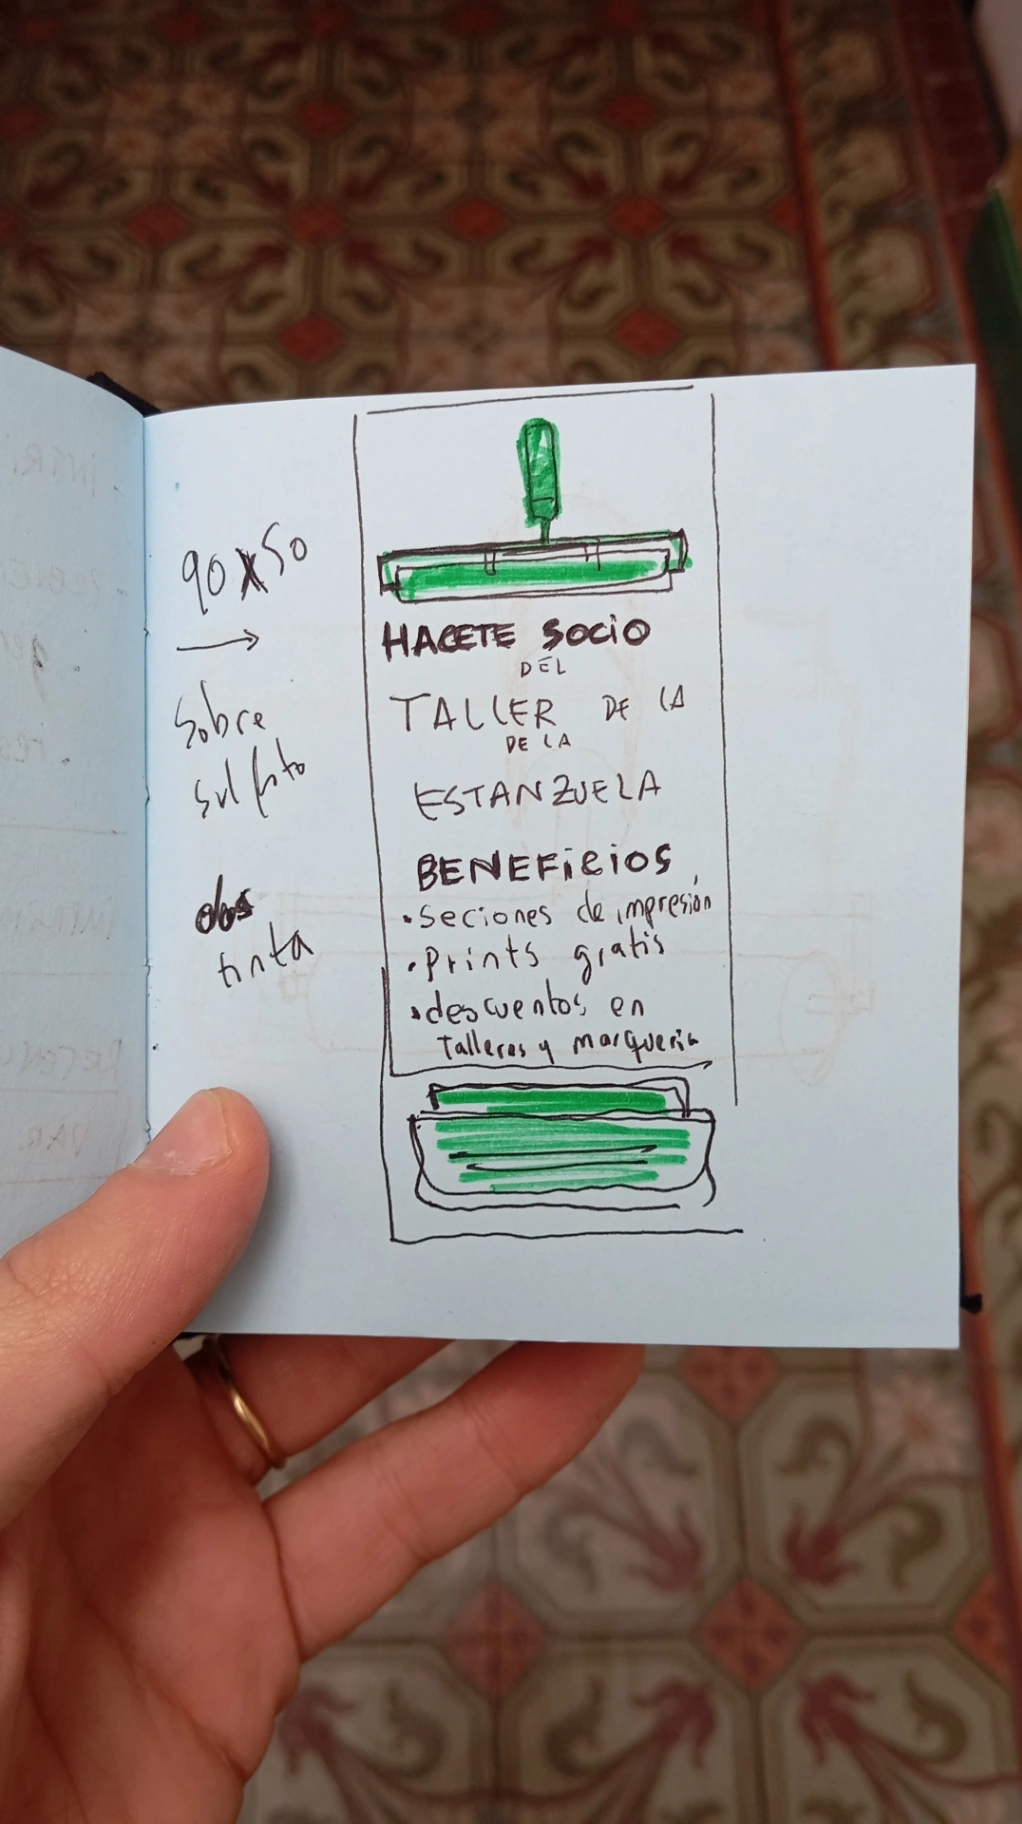 90x50
sobre
sulfito
dos
tinta
HACETE SOCIO
DEL
TALLER DE LA
DE LA
ESTANZUELA
BENEFICIOS
• Seciones de impresión
• Prints gratis
• descuentos en
Talleres y marqueria